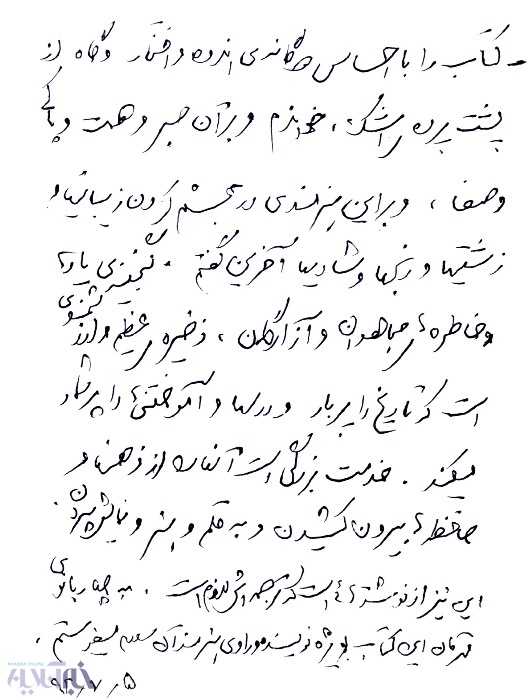 کتاب را با احساس دوگانه‌ی اندوه و افتخار و گاه از
پشت پرده‌ی اشک، خواندم و بر آن صبر و همت و پاکی
و صفا، و بر این هنرمندی در مجسّم کردن زیبائیها و
زشتیها و رنجها و شادیها آفرین گفتم. گنجینه‌ی یادها
و خاطره‌های مجاهدان و آزادگان، ذخیره‌ی عظیم و ارزشمندی
است که تاریخ را پربار و درسها و آموختنی‌ها را پرشمار
میکند. خدمت بزرگی است آنها را از ذهنها و
حافظه‌ها بیرون کشیدن و به قلم و هنر و نمایش سپردن.
این نیز از نوشته‌هائی است که ترجمه‌اش لازم است. به چهار بانوی
قهرمان این کتاب بویژه نویسنده و راوی هنرمند آن سلام میفرستم.
۹۲/۷/۵
خبرآنلاین
KHABAR ONLINE